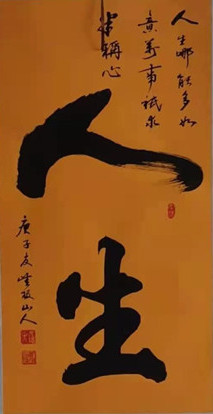 人生哪能多如
意万事祇求
半称心
人生
庚子友
山人